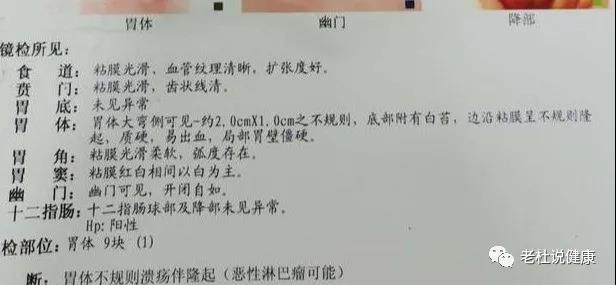 胃体 幽门 降部
镜检所见:
食 道: 粘膜光滑, 血管纹理清晰, 扩张度好。
贲 门: 粘膜光滑, 齿状线清。
胃 底: 未见异常
胃 体: 胃体大弯侧可见一约2.0cmX1.0cm之不规则, 底部附有白苔, 边沿粘膜呈不规则隆
起, 质硬, 易出血, 局部胃壁僵硬。
胃 角: 粘膜光滑柔软, 弧度存在。
胃 窦: 粘膜红白相间以白为主。
幽 门: 幽门可见, 开闭自如。
十二指肠: 十二指肠球部及降部未见异常。
Hp: 阳性
检部位: 胃体 9块 (1)
断: 胃体不规则溃疡伴隆起 (恶性淋巴瘤可能)
老杜说健康